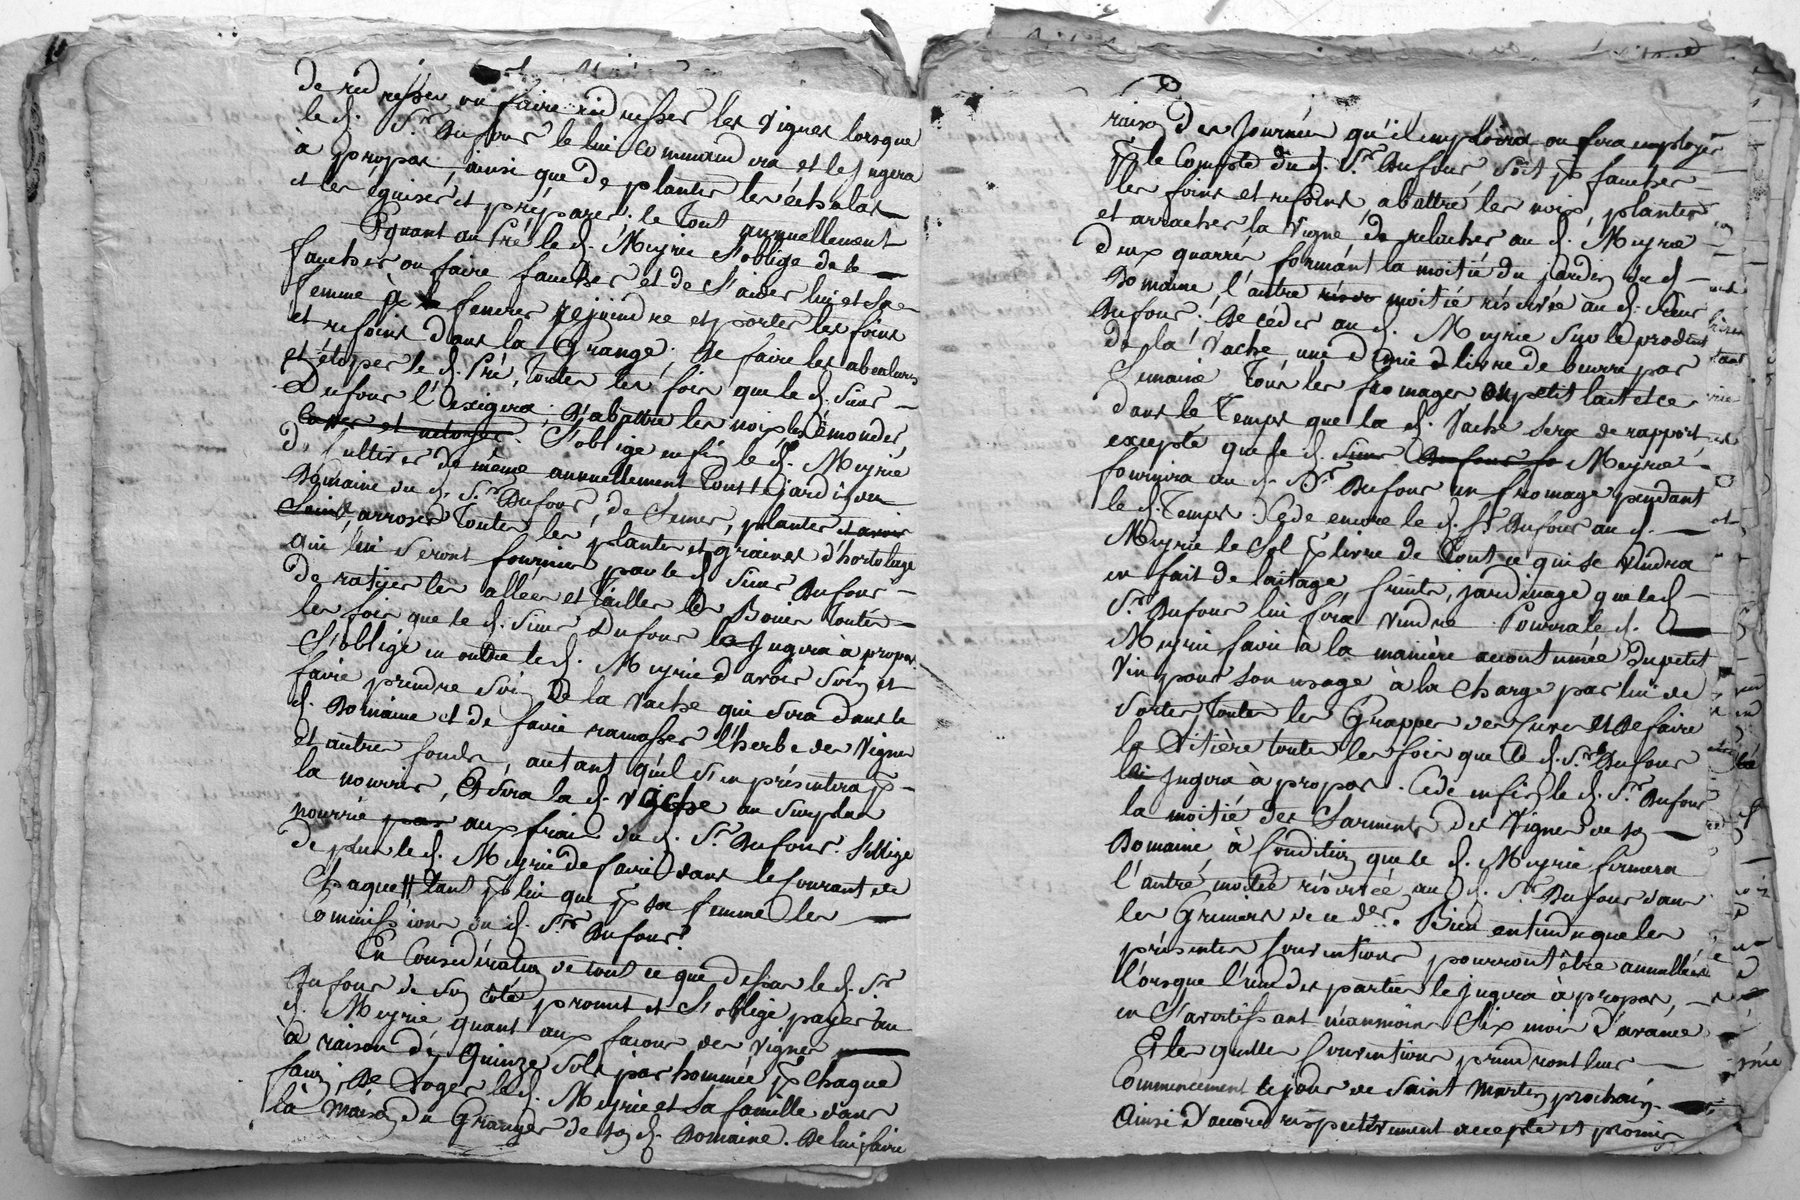 de redresser ou faire redresser les vignes lorsque
le d. S.r Dufour le lui commandera et le jugera
à propos, ainsi que de planter les échalas
et les éguiser et préparer. le tout annuellement
Equant au Pré le d. Meyrie s'oblige de le
faucher ou faire faucher et de s'aider lui et sa
femme à fenerer rejoindre et porter les foins
et refoins dans la Grange; De faire les
et étoper le d. Pré, toutes les fois que le d. Sieur
Dufour l'exigera; D'abattre les noix les émonder
S'oblige enfin le d. Meyrie
de Cultiver de même annuellement tout le jardin du
Domaine du d. S.r Dufour, de semer, planter et avoir
Soins, arroser toutes les plantes et graines d'hortolage
qui lui seront fournies par le d. Sieur Dufour
de ratisser les allées et tailler les Bouis toutes
les fois que le d. Sieur Dufour le jugera à propos.
S'oblige en outre le d. Meyrie d'avoir soin et
faire prendre soin de la vache qui sera dans le
d. Domaine et de faire ramasser l'herbe des vignes
et autres fonds, autant qu'il s'en présentera p.
la nourrir, Et sera la d. vache au surplus
nourrie par aux frais du d. S.r Dufour. S'oblige
de plus le d. Meyrie de faire dans le Courant de
Chaque # tant p. lui que p. sa femme les
Commissions du d. S.r Dufour.
En Considération de tout ce que dessus le d. S.r
Dufour de son côté promet et s'oblige payer au
d. Meyrie quant aux façons des vignes
à raison de Quinze sols par hommée p. chaque
façon, De Loger le d. Meyrie et sa famille dans
la maison du Granger de son d. Domaine. De lui faire
raison des Journées qu'il emploira ou fera employer
p. le Compte du d. S.r Dufour, soit p. faucher
les foins et refoins, abattre les noix, planter
et arracher la vigne, de relacher au d. Meyrie
deux quarrés formant la moitié du jardin du d.
Domaine l'autre moitié réservée au d. Sieur
Dufour. De céder au d. Meyrie sur le produit
de la Vache, une demie livre de beurre par
Semaine tous les fromages ou petit lait et ce
dans le temps que la d. Vache sera de rapport
excepté que le d. Sieur Dufour Meyrie
fournira au d. S.r Dufour un fromage pendant
le d. temps. Cède encore le d. S.r Dufour au d.
Meyrie le sol p. livre de tout ce qui se vendra
en fait de laitage, fruits, jardinage que le d.
S.r Dufour lui fera vendre. Pourra le d.
Meyrie faire à la manière accoutumée du petit
vin pour son usage à la charge par lui de
sortir toutes les Grappes des Cuves et de faire
la Litière toutes les fois que le d. S.r Dufour
le jugera à propos. Cède enfin le d. S.r Dufour
la moitié des Sarments des vignes de son
Domaine à Condition que le d. Meyrie fermera
l'autre moitié réservée au d. S.r Dufour dans
les Greniers de ce der. Bien entendu que les
présentes Conventions pourront être annullées
lorsque l'une des parties le jugera à propos,
en s'avertissant néanmoins six mois d'avance
Et les quelles Conventions prendront leur
Commencement le jour de Saint Martin prochain.
Ainsi d'accord respectivement accepté et promis